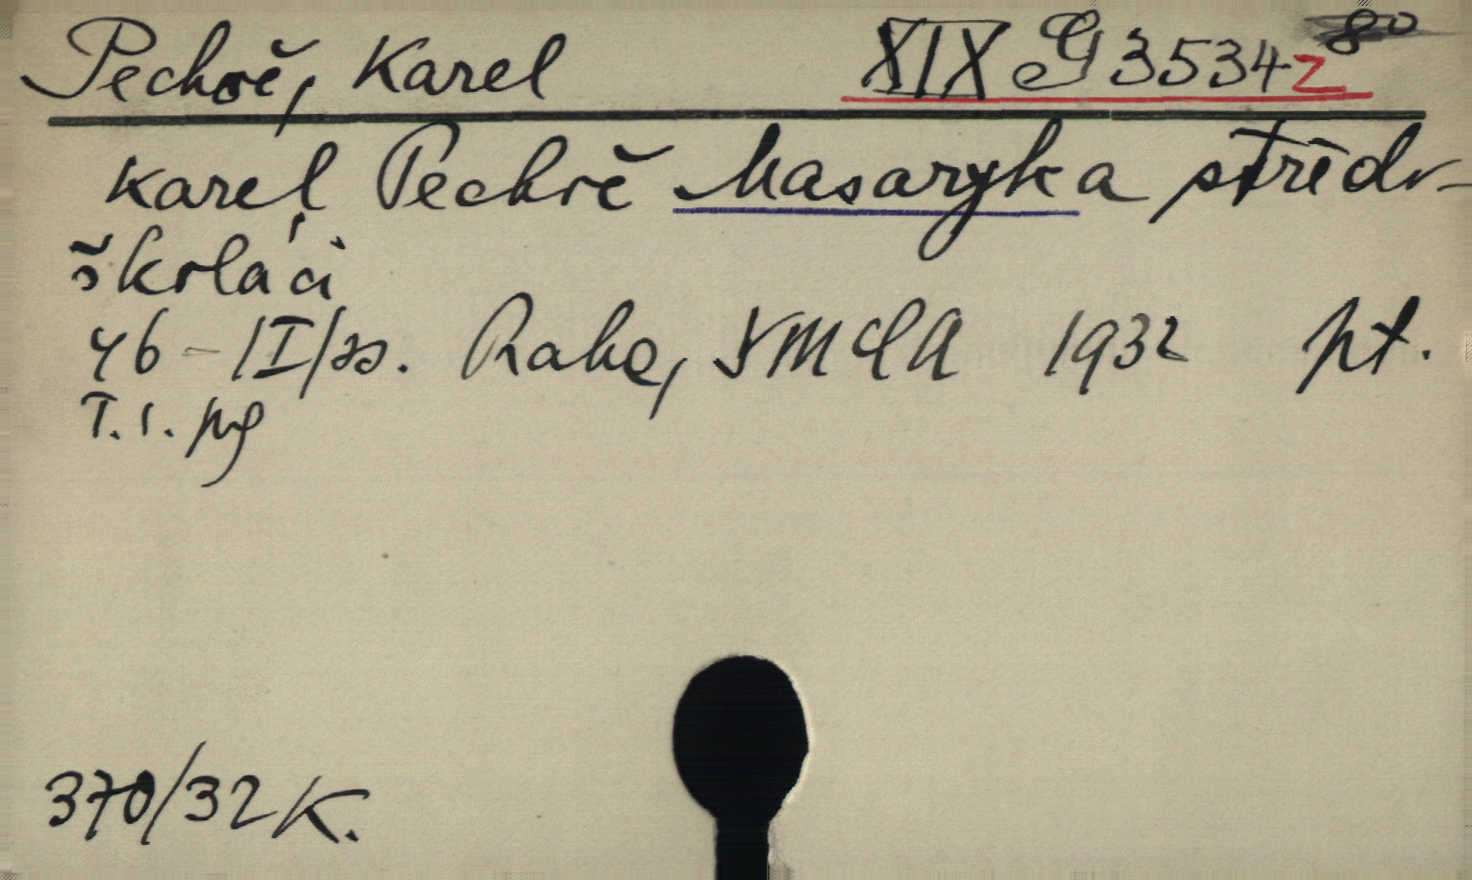 Pechoč, Karel XIX G 3534 z 8°
Karel Pechoč Masaryk a středo-
školáci
46-/I/ss. Praha, YMCA 1932 pt.
T. 1.
370/32 K.